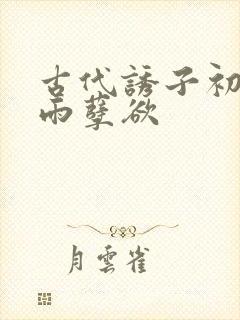 古代誘子初
雨孽欲
月雲雀